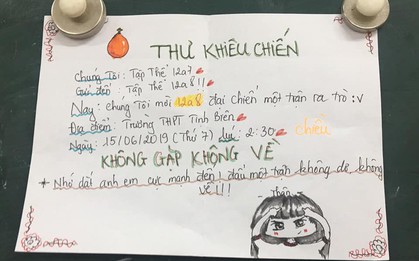 THƯ KHIÊU CHIẾN
Chúng Tôi : Tập Thể 12a7
Gửi đến : Tập thể 12a8!!
Nay : chúng Tôi mời 12a8 đại chiến một trận ra trò :v
Địa điểm : Trường THPT Tịnh Biên
Ngày : 15/06/2019 (Thứ 7) lúc : 2:30 chiều
KHÔNG GẶP KHÔNG VỀ
+ Nhớ dắt anh em cực mạnh đến ! đấu một trận không đã không
về !!!
Thân